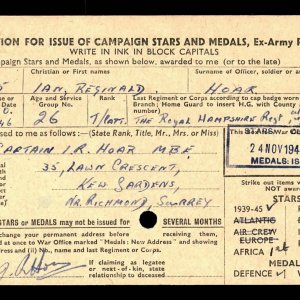 TION FOR ISSUE OF CAMPAIGN STARS AND MEDALS, Ex-Army P
WRITE IN INK IN BLOCK CAPITALS
paign Stars and Medals, as shown below, awarded to me (or to the late)
Christian or First names
Surname of Officer, soldier or a
IAN, REGINALD HOAR
Age and Service Group No.
Last Regiment or Corps according to cap badge worn
Branch; Home Guard to insert H.G. with County
26 T/CAPT. THE ROYAL HAMPSHIRE REGT
ued to me as follows :—
(State Rank, Title, Mr., Mrs. or Miss)
CAPTAIN I.R. HOAR MBE,
35, LAWN CRESCENT,
KEW GARDENS,
NR. RICHMOND, SURREY
24 NOV 194
MEDALS: IS
STARS or MEDALS may not be issued for SEVERAL MONTHS
change in your permanent address before receiving them,
once to War Office marked "Medals: New Address" and showing
address, name and last Regiment or Corps.
If claiming as legatee or next-of-kin, state relationship to deceased
Strike out items
NOT
STARS
1939-45
ATLANTIC
AIR CREW
EUROPE
AFRICA 1st
MEDAL
DEFENCE